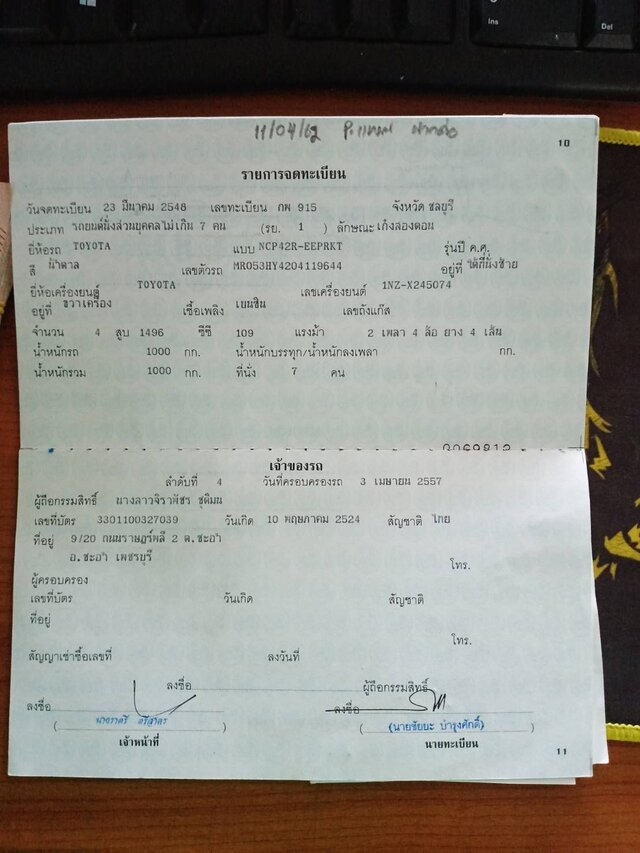 Ins
Del
11/04/62
10
รายการจดทะเบียน
วันจดทะเบียน 23 มีนาคม 2548 เลขทะเบียน กพ 915 จังหวัด ชลบุรี
ประเภท รถยนต์นั่งส่วนบุคคลไม่เกิน 7 คน (รย. 1 ) ลักษณะ เก๋งสองตอน
ยี่ห้อรถ TOYOTA แบบ NCP42R-EEPRKT รุ่นปี ค.ศ.
สี น้ำตาล เลขตัวรถ MR053HY4204119644 อยู่ที่ ใต้ที่นั่งซ้าย
ยี่ห้อเครื่องยนต์ TOYOTA เลขเครื่องยนต์ 1NZ-X245074
อยู่ที่ ขวาเครื่อง เชื้อเพลิง เบนซิน เลขถังแก๊ส
จำนวน 4 สูบ 1496 ซีซี 109 แรงม้า 2 เพลา 4 ล้อ ยาง 4 เส้น
น้ำหนักรถ 1000 กก. น้ำหนักบรรทุก/น้ำหนักลงเพลา กก.
น้ำหนักรวม 1000 กก. ที่นั่ง 7 คน
เจ้าของรถ
ลำดับที่ 4 วันที่ครอบครองรถ 3 เมษายน 2557
ผู้ถือกรรมสิทธิ์ นางสาวจิราพัชร ชุติมน
เลขที่บัตร 3301100327039 วันเกิด 10 พฤษภาคม 2524 สัญชาติ ไทย
ที่อยู่ 9/20 ถนนราษฎร์พลี 2 ต.ชะอำ
อ.ชะอำ เพชรบุรี
โทร.
ผู้ครอบครอง
เลขที่บัตร วันเกิด สัญชาติ
ที่อยู่
โทร.
สัญญาเช่าซื้อเลขที่ ลงวันที่
ลงชื่อ ผู้ถือกรรมสิทธิ์
ลงชื่อ ลงชื่อ
(นายชัยยะ บำรุงศักดิ์)
เจ้าหน้าที่ นายทะเบียน
11